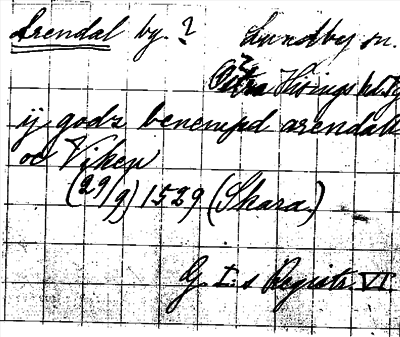 Arendal by. ? Lundby sn.
Östra Hisings hd. Gbg
ij godz benempd arendall
oc Viken
(29/9) 1529 (Skara.)
G. I:s Registr. VI